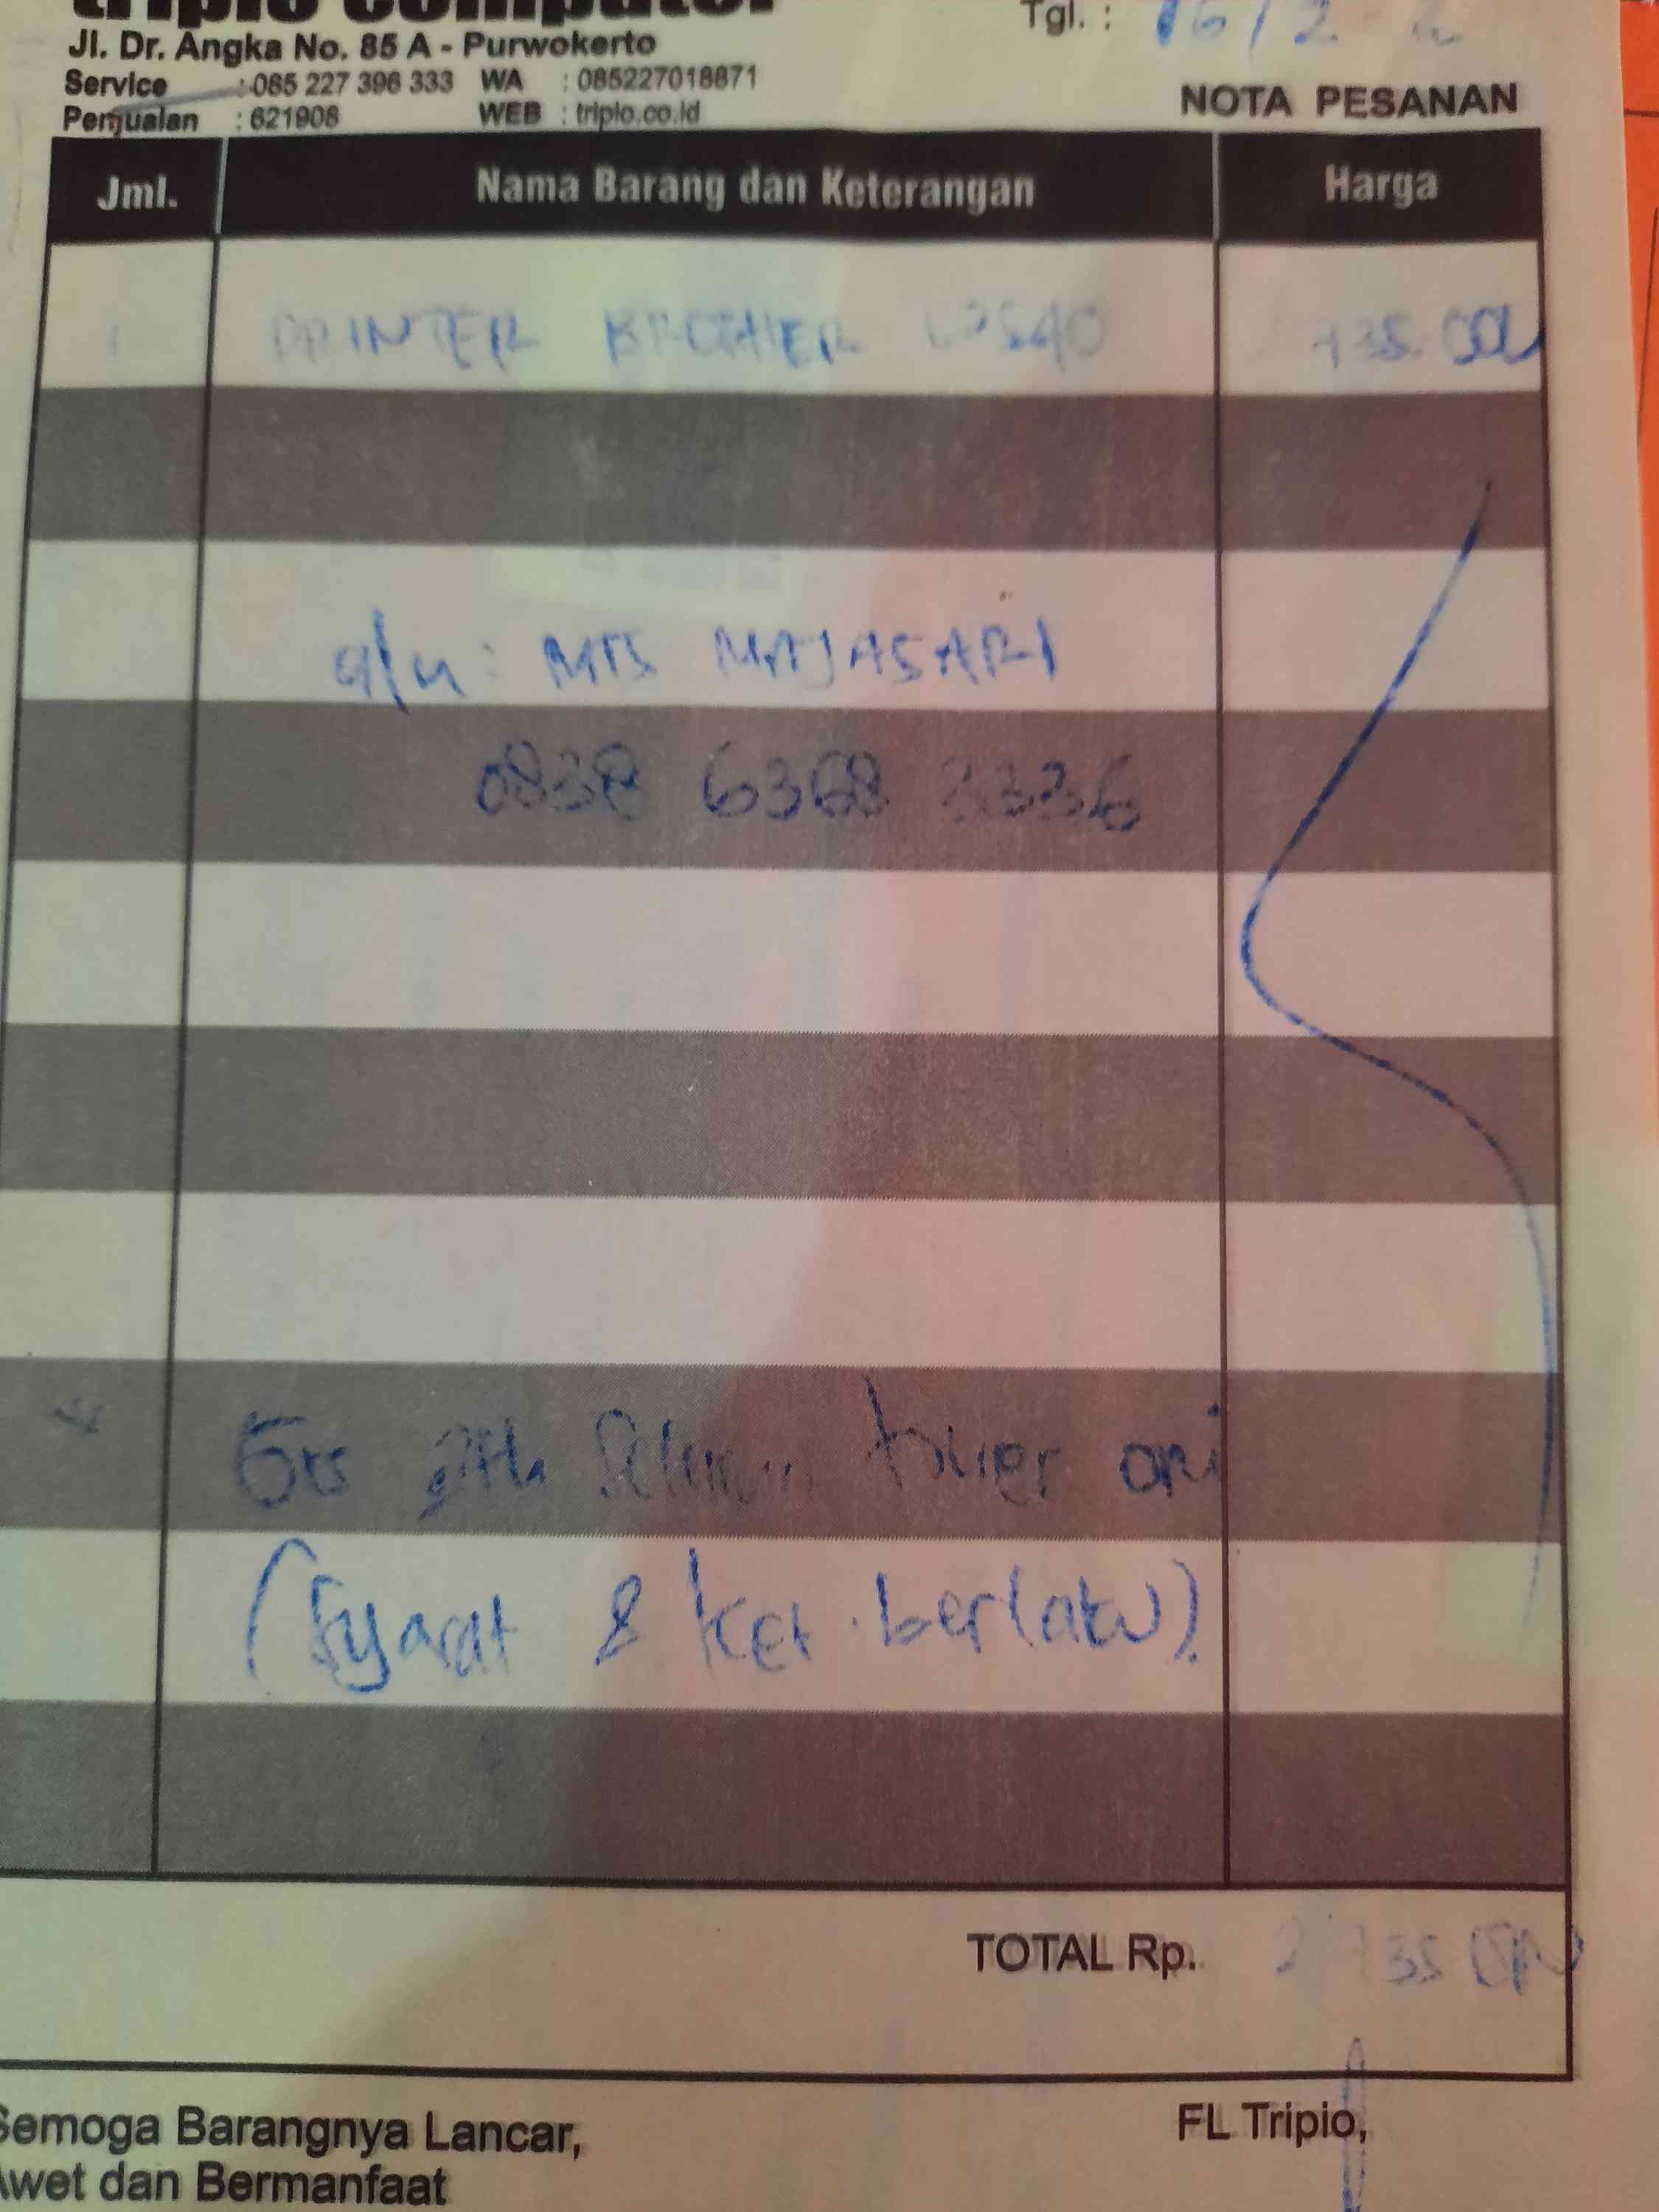 tripio computer
Tgl. : 16/2
Jl. Dr. Angka No. 85 A - Purwokerto
Service : 085 227 396 333 WA : 085227018871
Penjualan : 621908 WEB : tripio.co.id
NOTA PESANAN
Jml. Nama Barang dan Keterangan Harga
1 PRINTER BROTHER 735.000
a/n : MTS MAJASARI
0838 6368
Grs 2th Selama toner ori
(Syarat & Ket. berlaku).
TOTAL Rp. 2 735
Semoga Barangnya Lancar,
Awet dan Bermanfaat
FL Tripio,